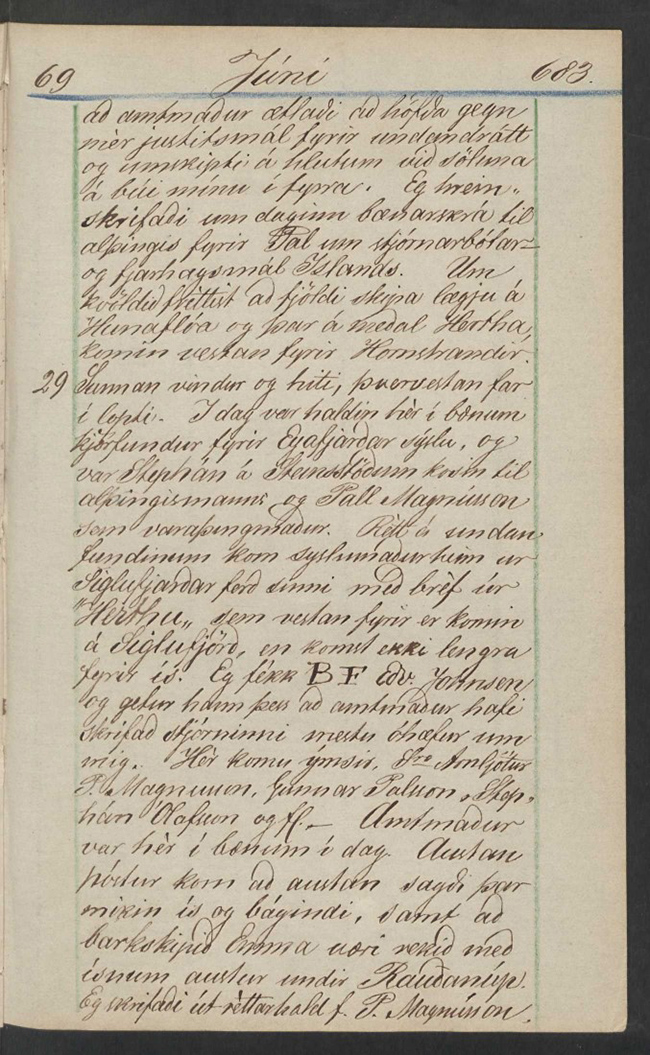 69 Júní 683.
ad amtmadur ætladi ad höfda gegn
mèr justitsmál fyrir undandrátt
og umskipti á hlutum vid söluna
á búi mínu í fyrra. Eg hrein„
skrifadi um daginn bænarskrá til
alþingis fyrir Pál um stjórnarbótar-
og fjárhagsmál Islands. Um
kvöldid fréttist ad fjöldi skipa lægju á
Húnaflóa og þar á medal Hertha,
komin vestan fyrir Hornstrandir.
29 Sunnan vindur og hiti, þvervestan far
í lopti. I dag var haldin hèr í bænum
kjörfundur fyrir Eyafjardar sýslu, og
var Stephán á Steinsstödum kosin til
alþingismanns og Páll Magnússon
sem varaþingmadur. Rètt á undan
fundinum kom syslumadur heim ur
Siglufjardar ferd sinni med brèf úr
"Herthu„ sem vestan fyrir er komin
á Siglufjörd, en komst ekki lengra
fyrir ís. Eg fékk B F Edv. Johnsen
og getur hann þess ad amtmadur hafi
skrifad stjórninni mestu óhæfur um
mig. Hèr komu ýmsir, Sra Arnljótur
P. Magnusson, Gunnar Palsson, Step„
hán Ólafsson og fl. – Amtmadur
var hèr í bænum í dag. Austan
póstur kom ad austan sagdi þar
mikin ís og bágindi, samt ad
barkskipid Emma væri rekid med
ísnum austur undir Raudanúp.
Eg skrifadi út rèttarhald f. P. Magnússon.